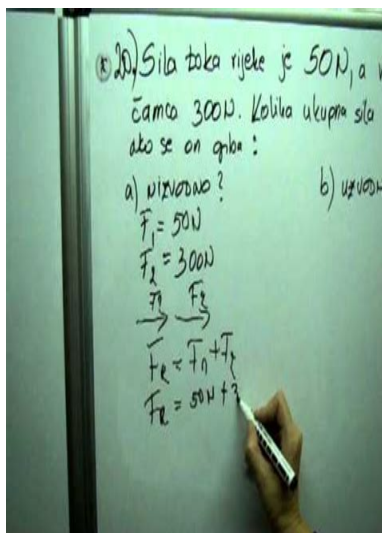 20.) Sila toka rijeke je 50N, a v
čamca 300N. Kolika ukupna sila
ako se on giba :
a) NIZVODNO? b) UZVODN
F₁ = 50N
F₂ = 300N
F₁ F₂
F_R = F₁ + F₂
F_R = 50N + 3